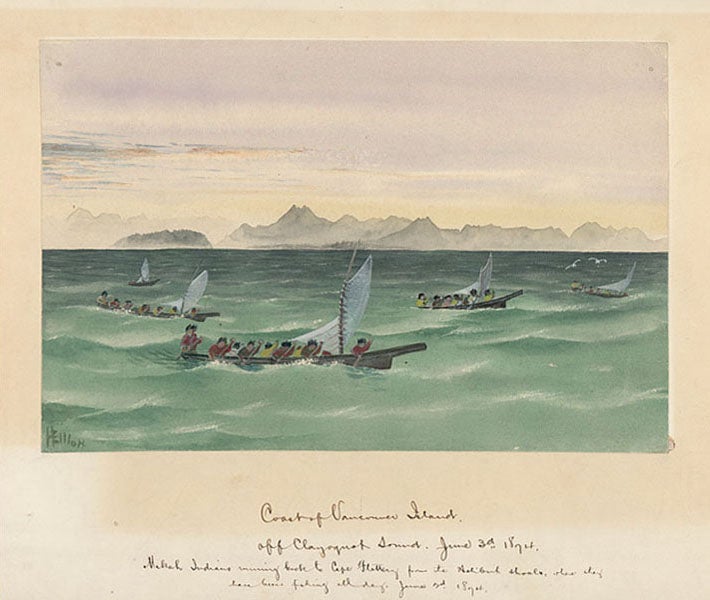 HEllIott
Coast of Vancouver Island.
off Clayoquot Sound. June 3d 1874.
Makah Indians running back to Cape Flattery from the Halibut shoals, where they
have been fishing all day. June 3d 1874.